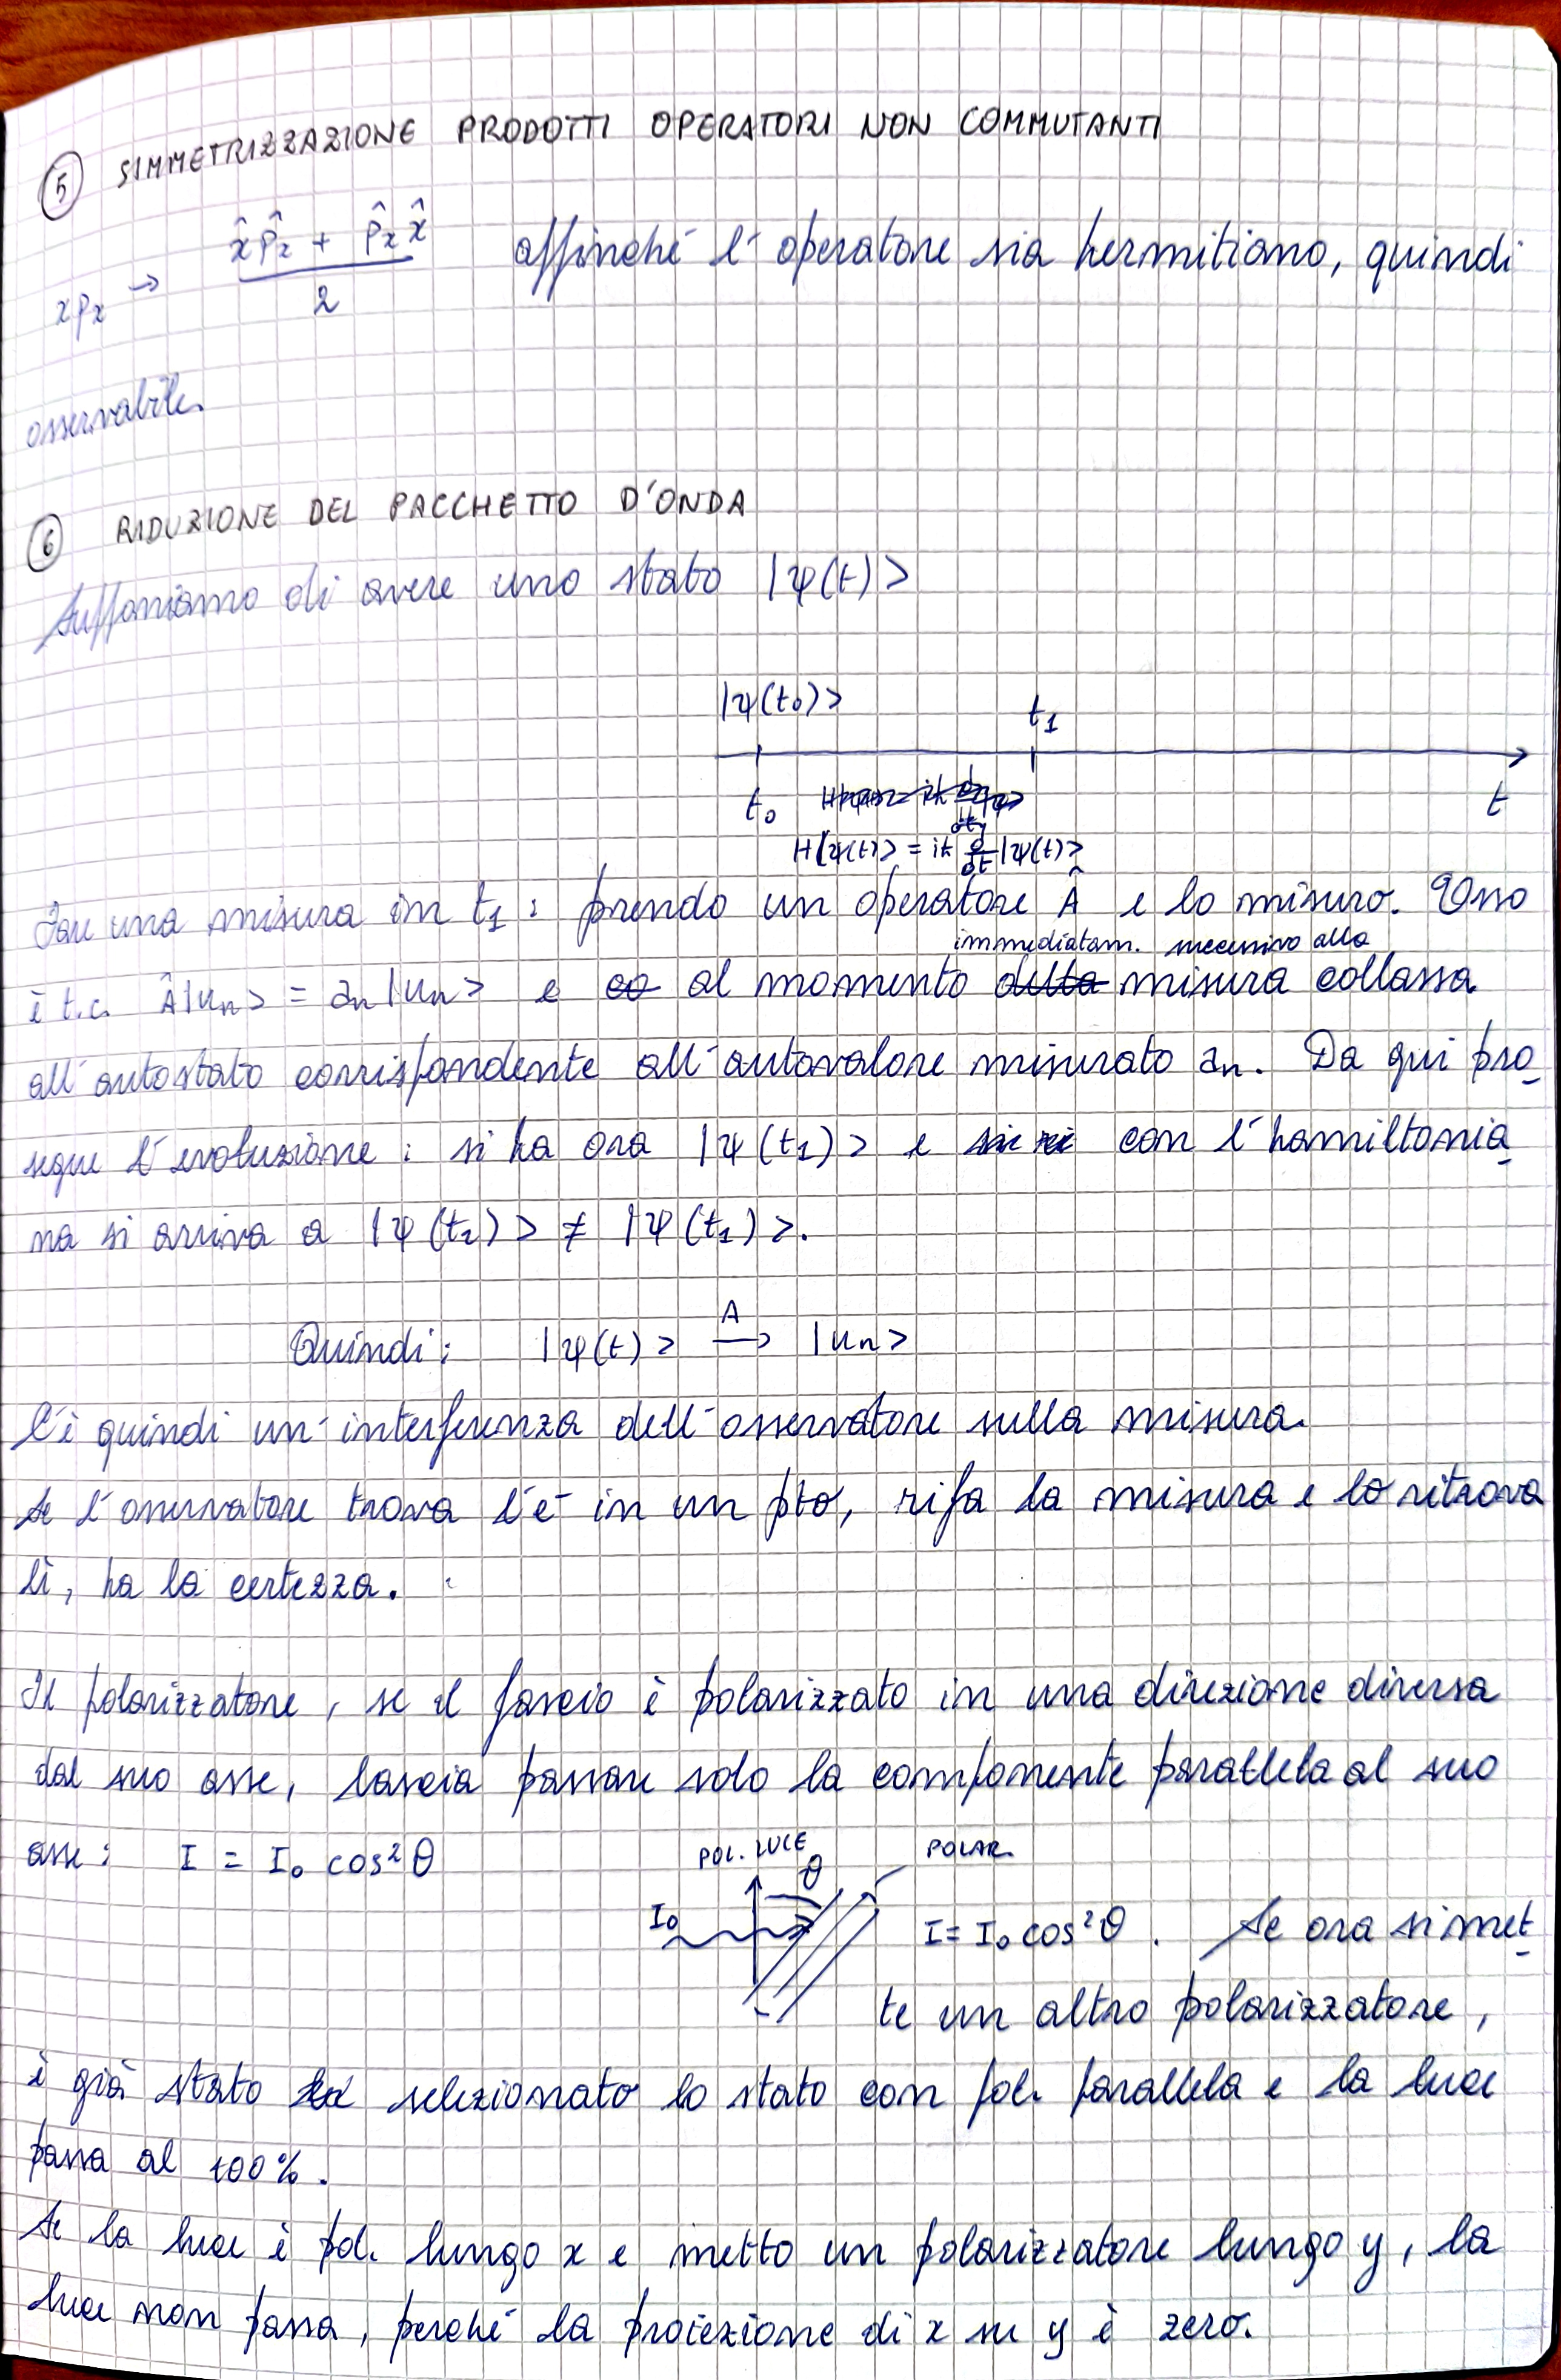 ⑤ SIMMETRIZZAZIONE PRODOTTI OPERATORI NON COMMUTANTI
xpₓ → (x̂p̂ₓ + p̂ₓx̂)/2 affinché l'operatore sia hermitiano, quindi
osservabile.
⑥ RIDUZIONE DEL PACCHETTO D'ONDA
Supponiamo di avere uno stato |ψ(t)>
|ψ(t₀)> t₁
t₀ t
H|ψ(t)> = iħ ∂/∂t |ψ(t)>
Fare una misura in t₁: prendo un operatore Â e lo misuro. Esso
immediatam. successivo alla
è t.c. Â|uₙ> = aₙ|uₙ> e al momento misura collassa
all'autostato corrispondente all'autovalore misurato aₙ. Da qui pro_
segue l'evoluzione: si ha ora |ψ(t₁)> e con l'hamiltonia_
na si arriva a |ψ(t₂)> ≠ |ψ(t₁)>.
Quindi: |ψ(t)> —A→ |uₙ>
C'è quindi un'interferenza dell'osservatore sulla misura.
Se l'osservatore trova l'e⁻ in un pto, rifa la misura e lo ritrova
lì, ha la certezza.
Il polarizzatore, se il fascio è polarizzato in una direzione diversa
dal suo asse, lascia passare solo la componente parallela al suo
asse: I = I₀ cos²θ
POL. LUCE θ POLAR.
I₀ I = I₀ cos²θ. Se ora si met_
te un altro polarizzatore,
è già stato selezionato lo stato con pol. parallela e la luce
passa al 100%.
Se la luce è pol. lungo x e metto un polarizzatore lungo y, la
luce non passa, perché la proiezione di x su y è zero.